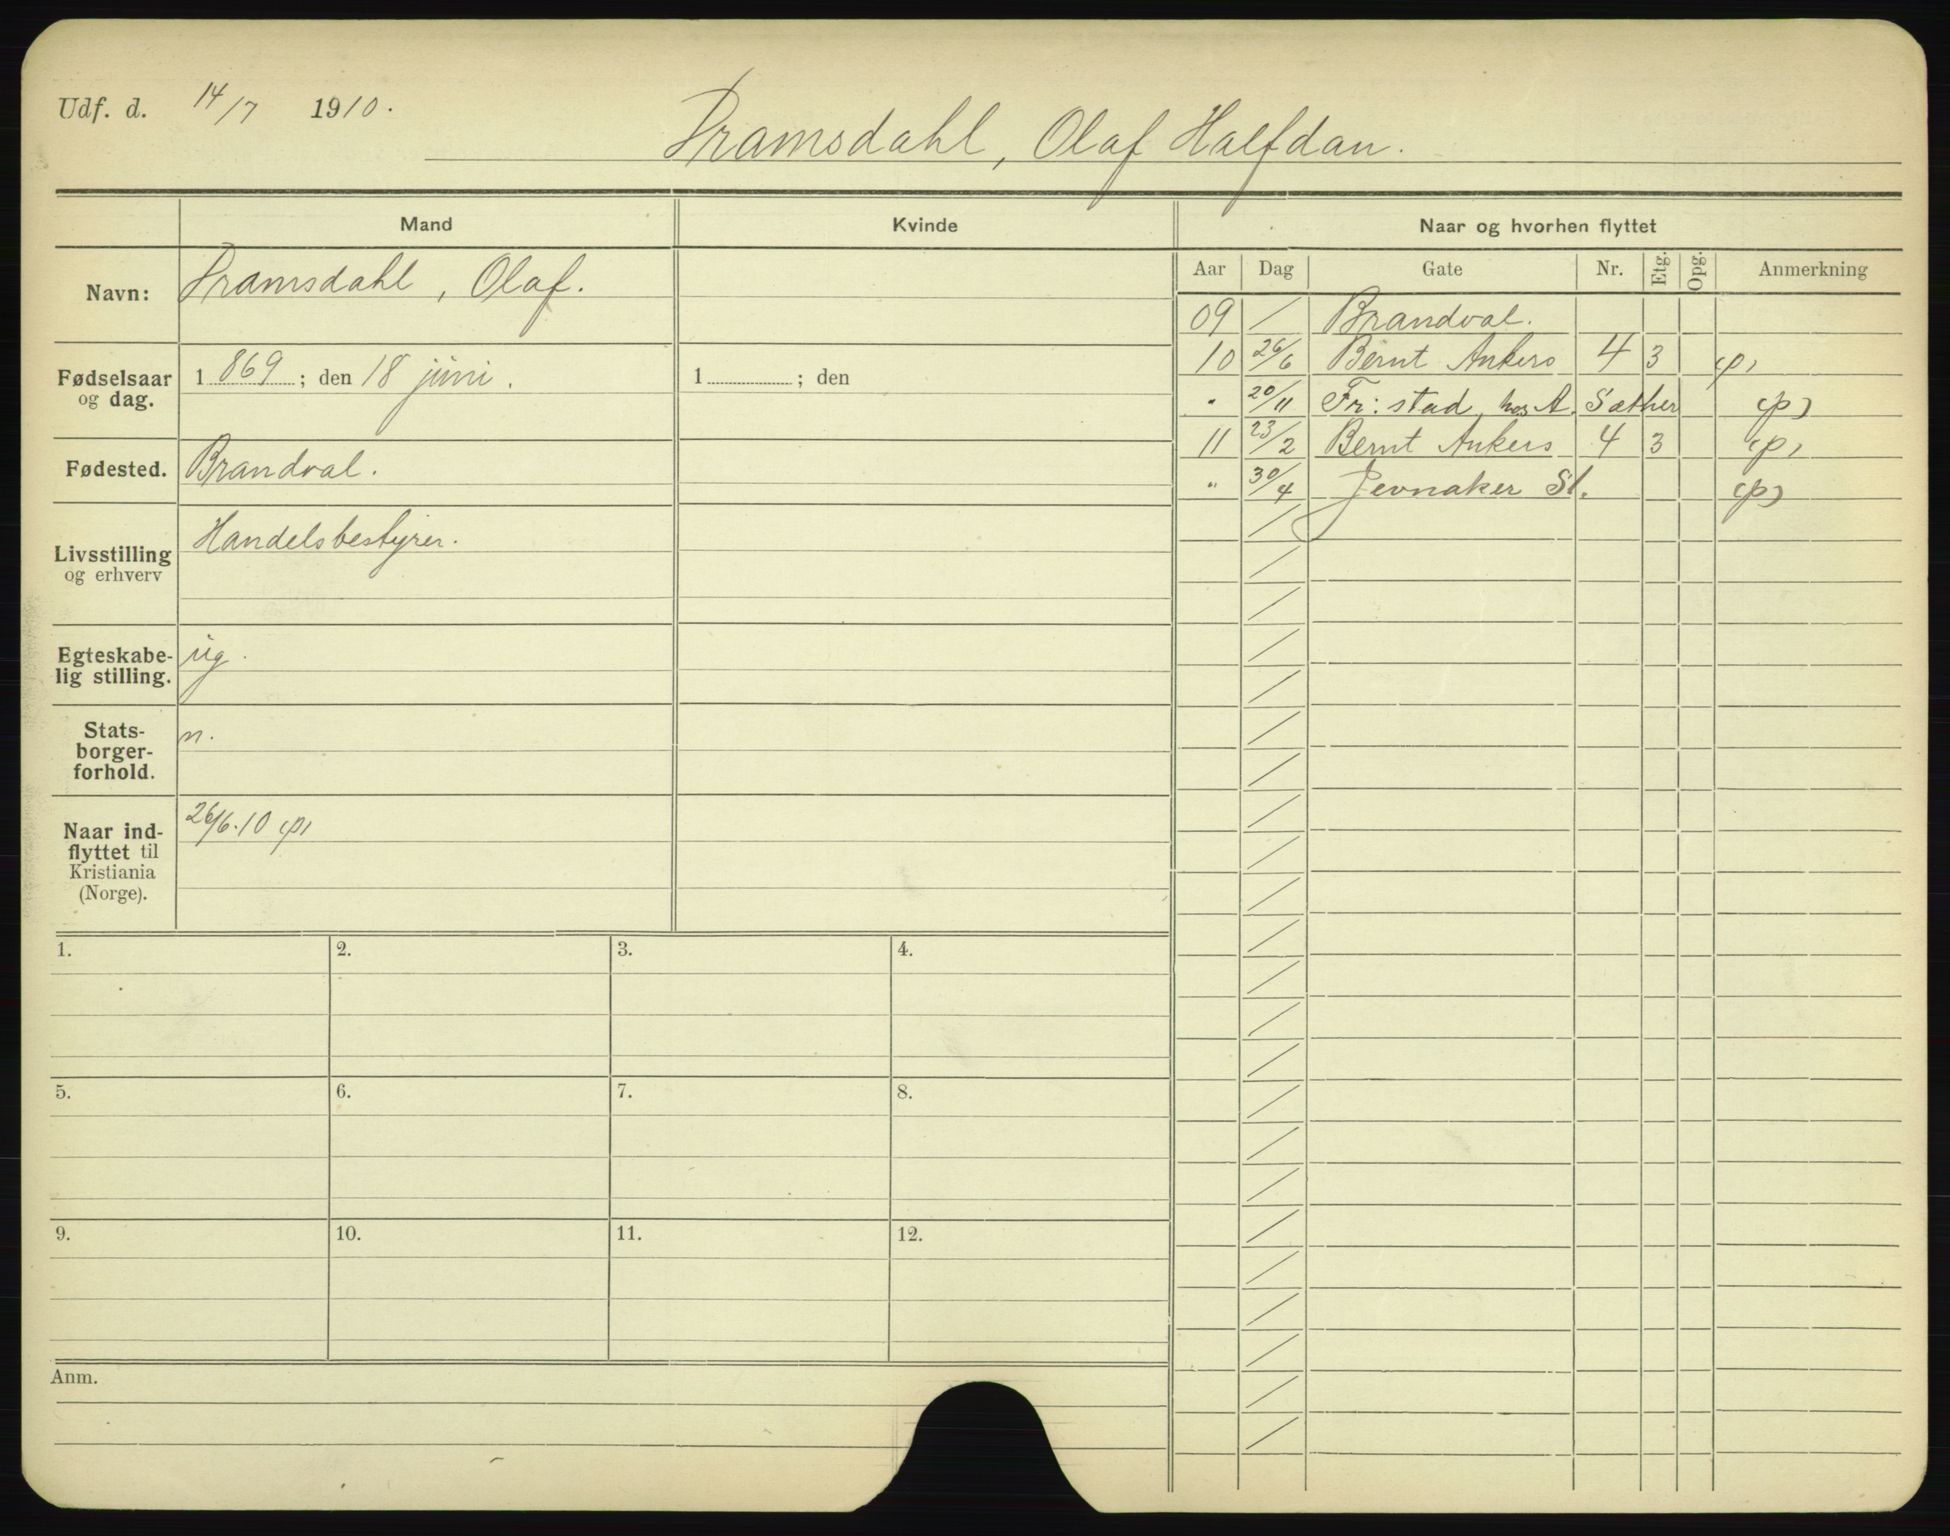 Udf. d. 14/7 1910.
Pramsdahl, Olaf Halfdan.
Mand Kvinde Naar og hvorhen flyttet
Navn: Pramsdahl, Olaf.
Fødselsaar og dag. 1869; den 18 juni. 1 ; den
Fødested. Brandval.
Livsstilling og erhverv Handelsbestyrer.
Egteskabe-
lig stilling. ug.
Stats-
borger-
forhold. n.
Naar ind-
flyttet til
Kristiania
(Norge). 26/6.10 (p)
Aar Dag Gate Nr. Etg. Opg. Anmerkning
09 / Brandval.
10 26/6 Bernt Ankers 4 3 (p)
" 20/11 Fr:stad, hos A. Sæther (p)
11 23/2 Bernt Ankers 4 3 (p)
" 30/4 Jevnaker St. (p)
1. 2. 3. 4.
5. 6. 7. 8.
9. 10. 11. 12.
Anm.